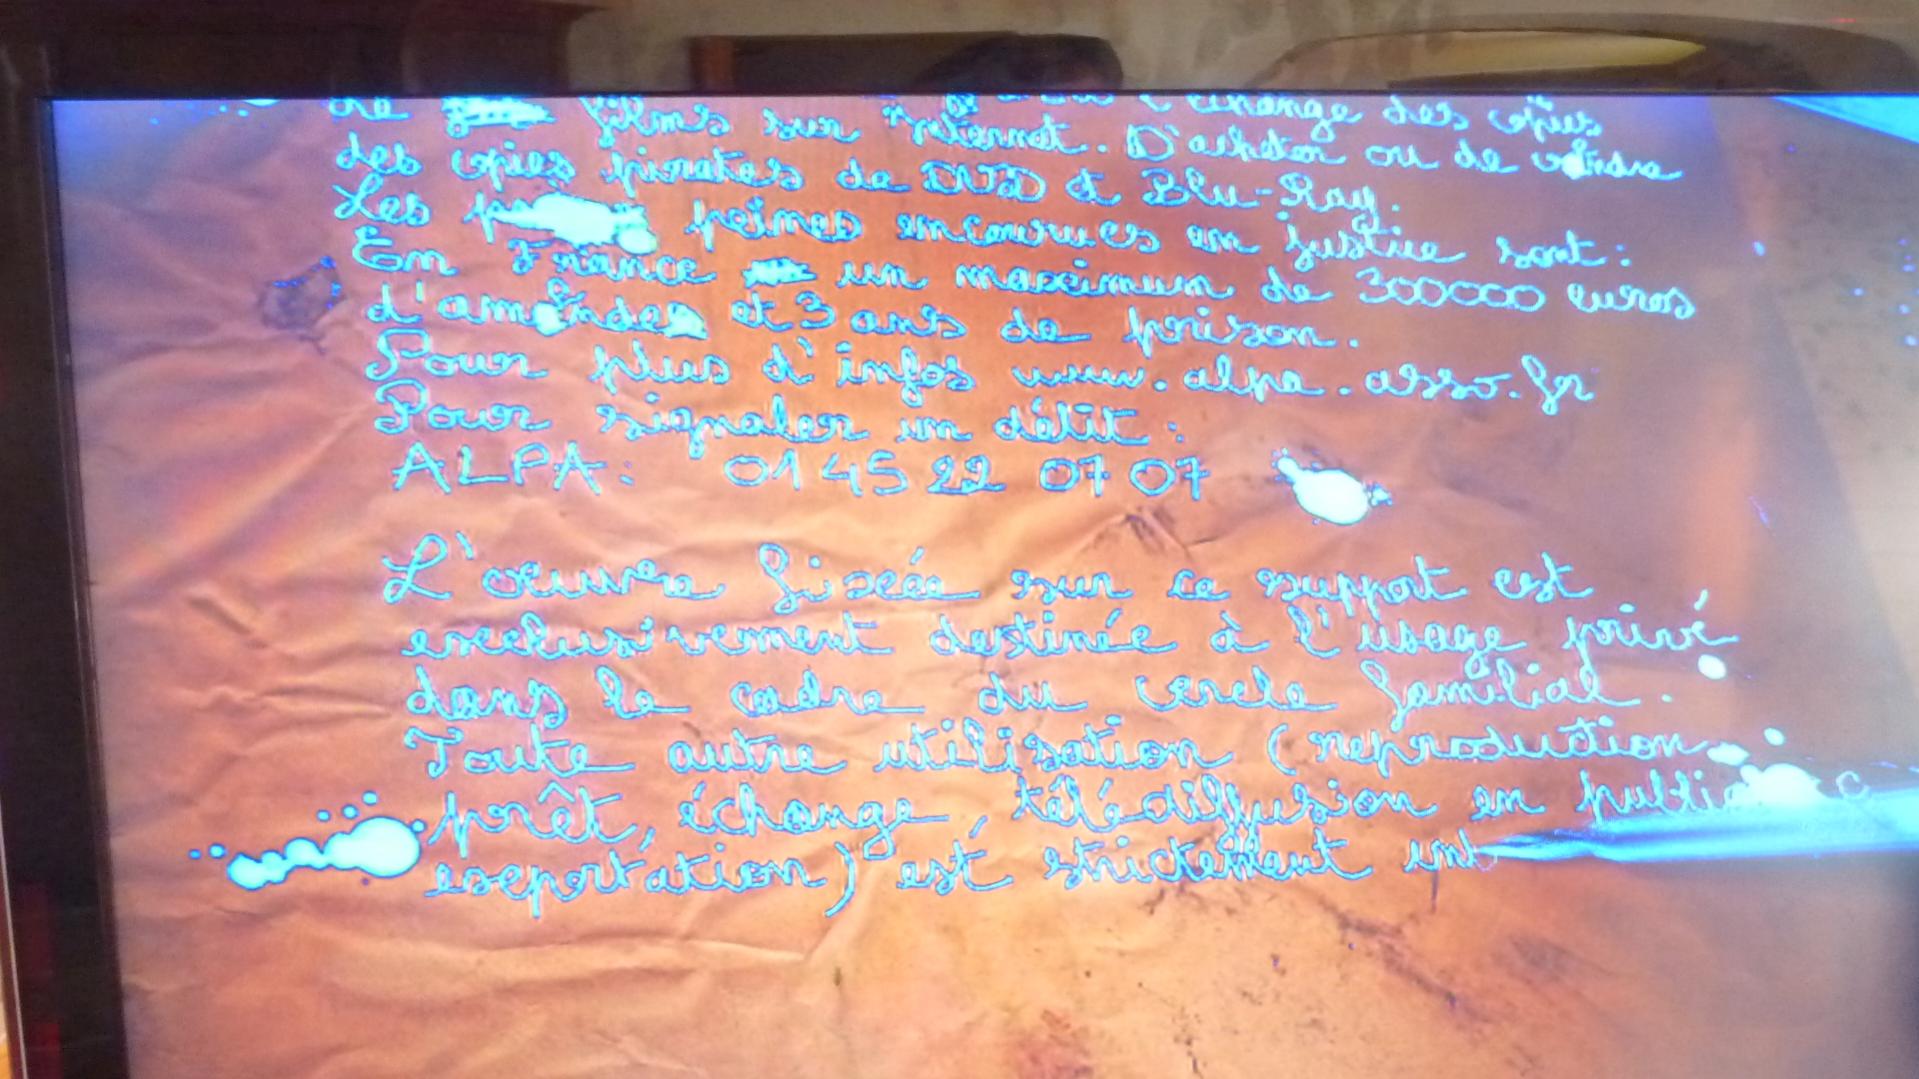 l'échange des copies
de films sur Internet. D'acheter ou de vendre
des copies pirates de DVD et Blu-Ray.
Les peines encourues en justice sont :
En France un maximum de 300000 euros
d'amendes et 3 ans de prison.
Pour plus d'infos www.alpa.asso.fr
Pour signaler un délit :
ALPA : 01 45 22 07 07
L'oeuvre fixée sur ce support est
exclusivement destinée à l'usage privé
dans le cadre du cercle familial.
Toute autre utilisation (reproduction
prêt, échange, télédiffusion en public
exportation) est strictement int